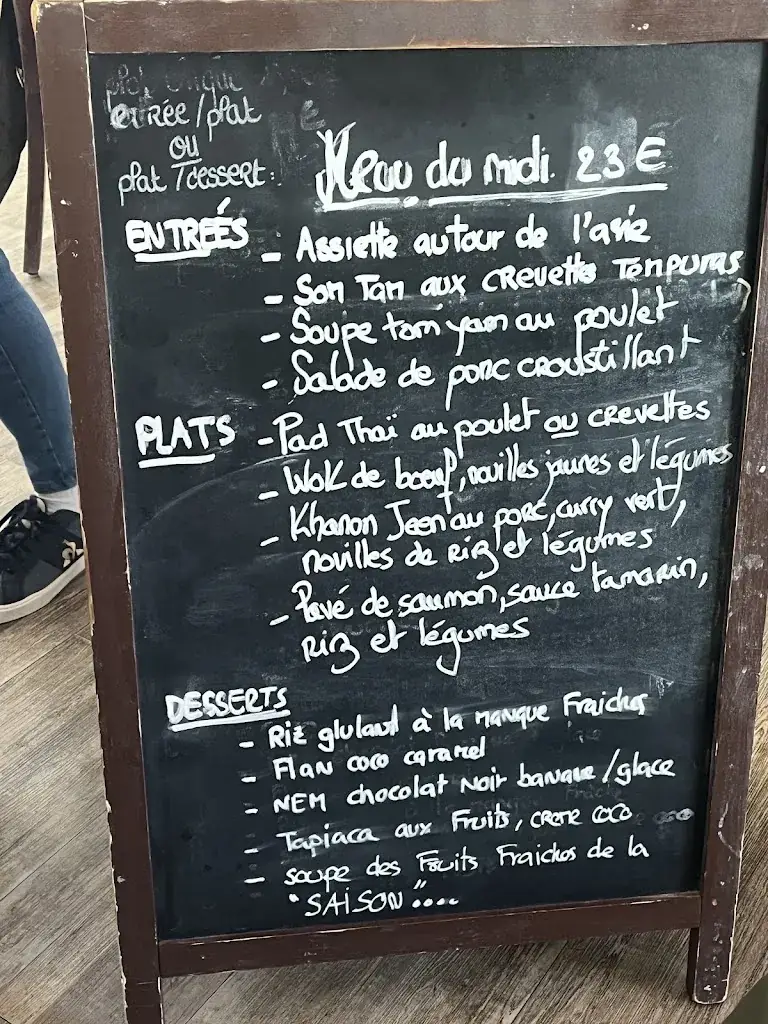 plat unique
entrée/plat
ou
plat /dessert:
Menu du midi 23€
ENTREÉS
- Assiette autour de l'asie
- Som Tam aux crevettes Tempuras
- Soupe tom yam au poulet
- Salade de porc croustillant
PLATS
- Pad Thaï au poulet ou crevettes
- Wok de boeuf, nouilles jaunes et légumes
- Khanon Jeen au porc, curry vert,
nouilles de Riz et légumes
- Pavé de saumon, sauce tamarin,
Riz et légumes
DESSERTS
- Riz glutant à la mangue Fraiches
- Flan coco caramel
- NEM chocolat Noir banane/glace
- Tapiaca aux Fruits, creme coco
- soupe des Fruits Fraiches de la
"SAISON"....